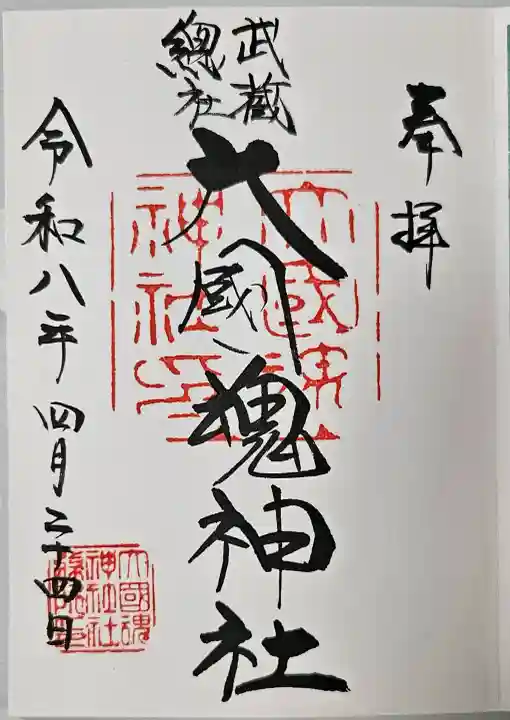 奉拝
武蔵
總社
大國魂神社
令和八年四月二十四日
大國魂
神社印
大國魂
神社社